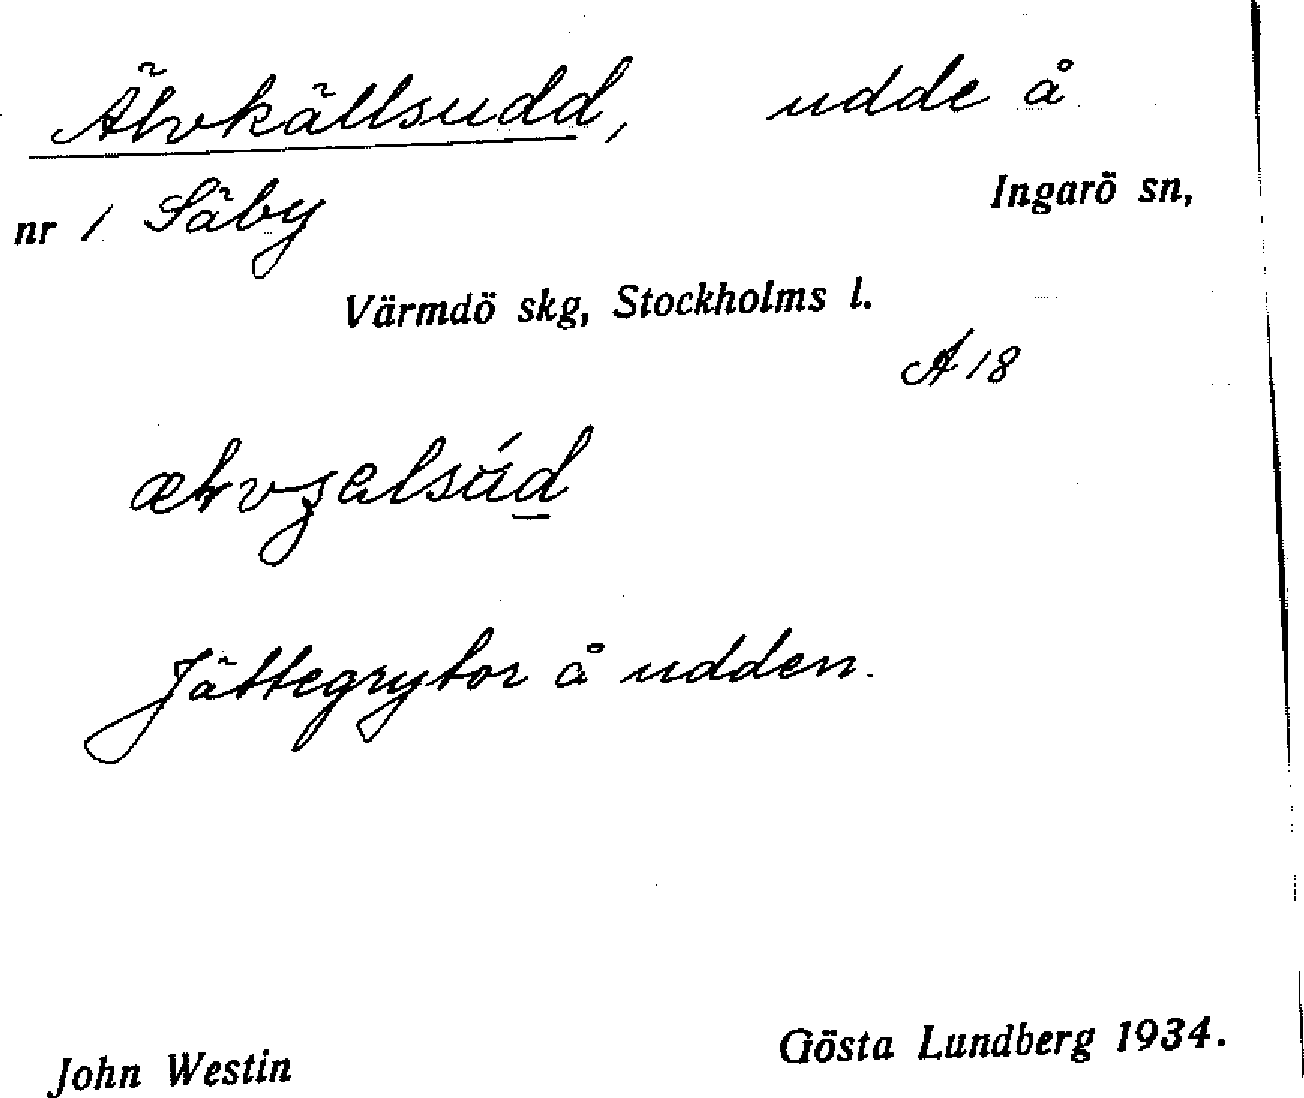 Älvkällsudd, udde å
nr 1 Säby Ingarö sn,
Värmdö skg, Stockholms l.
A 18
Jättegrytor å udden.
John Westin Gösta Lundberg 1934.